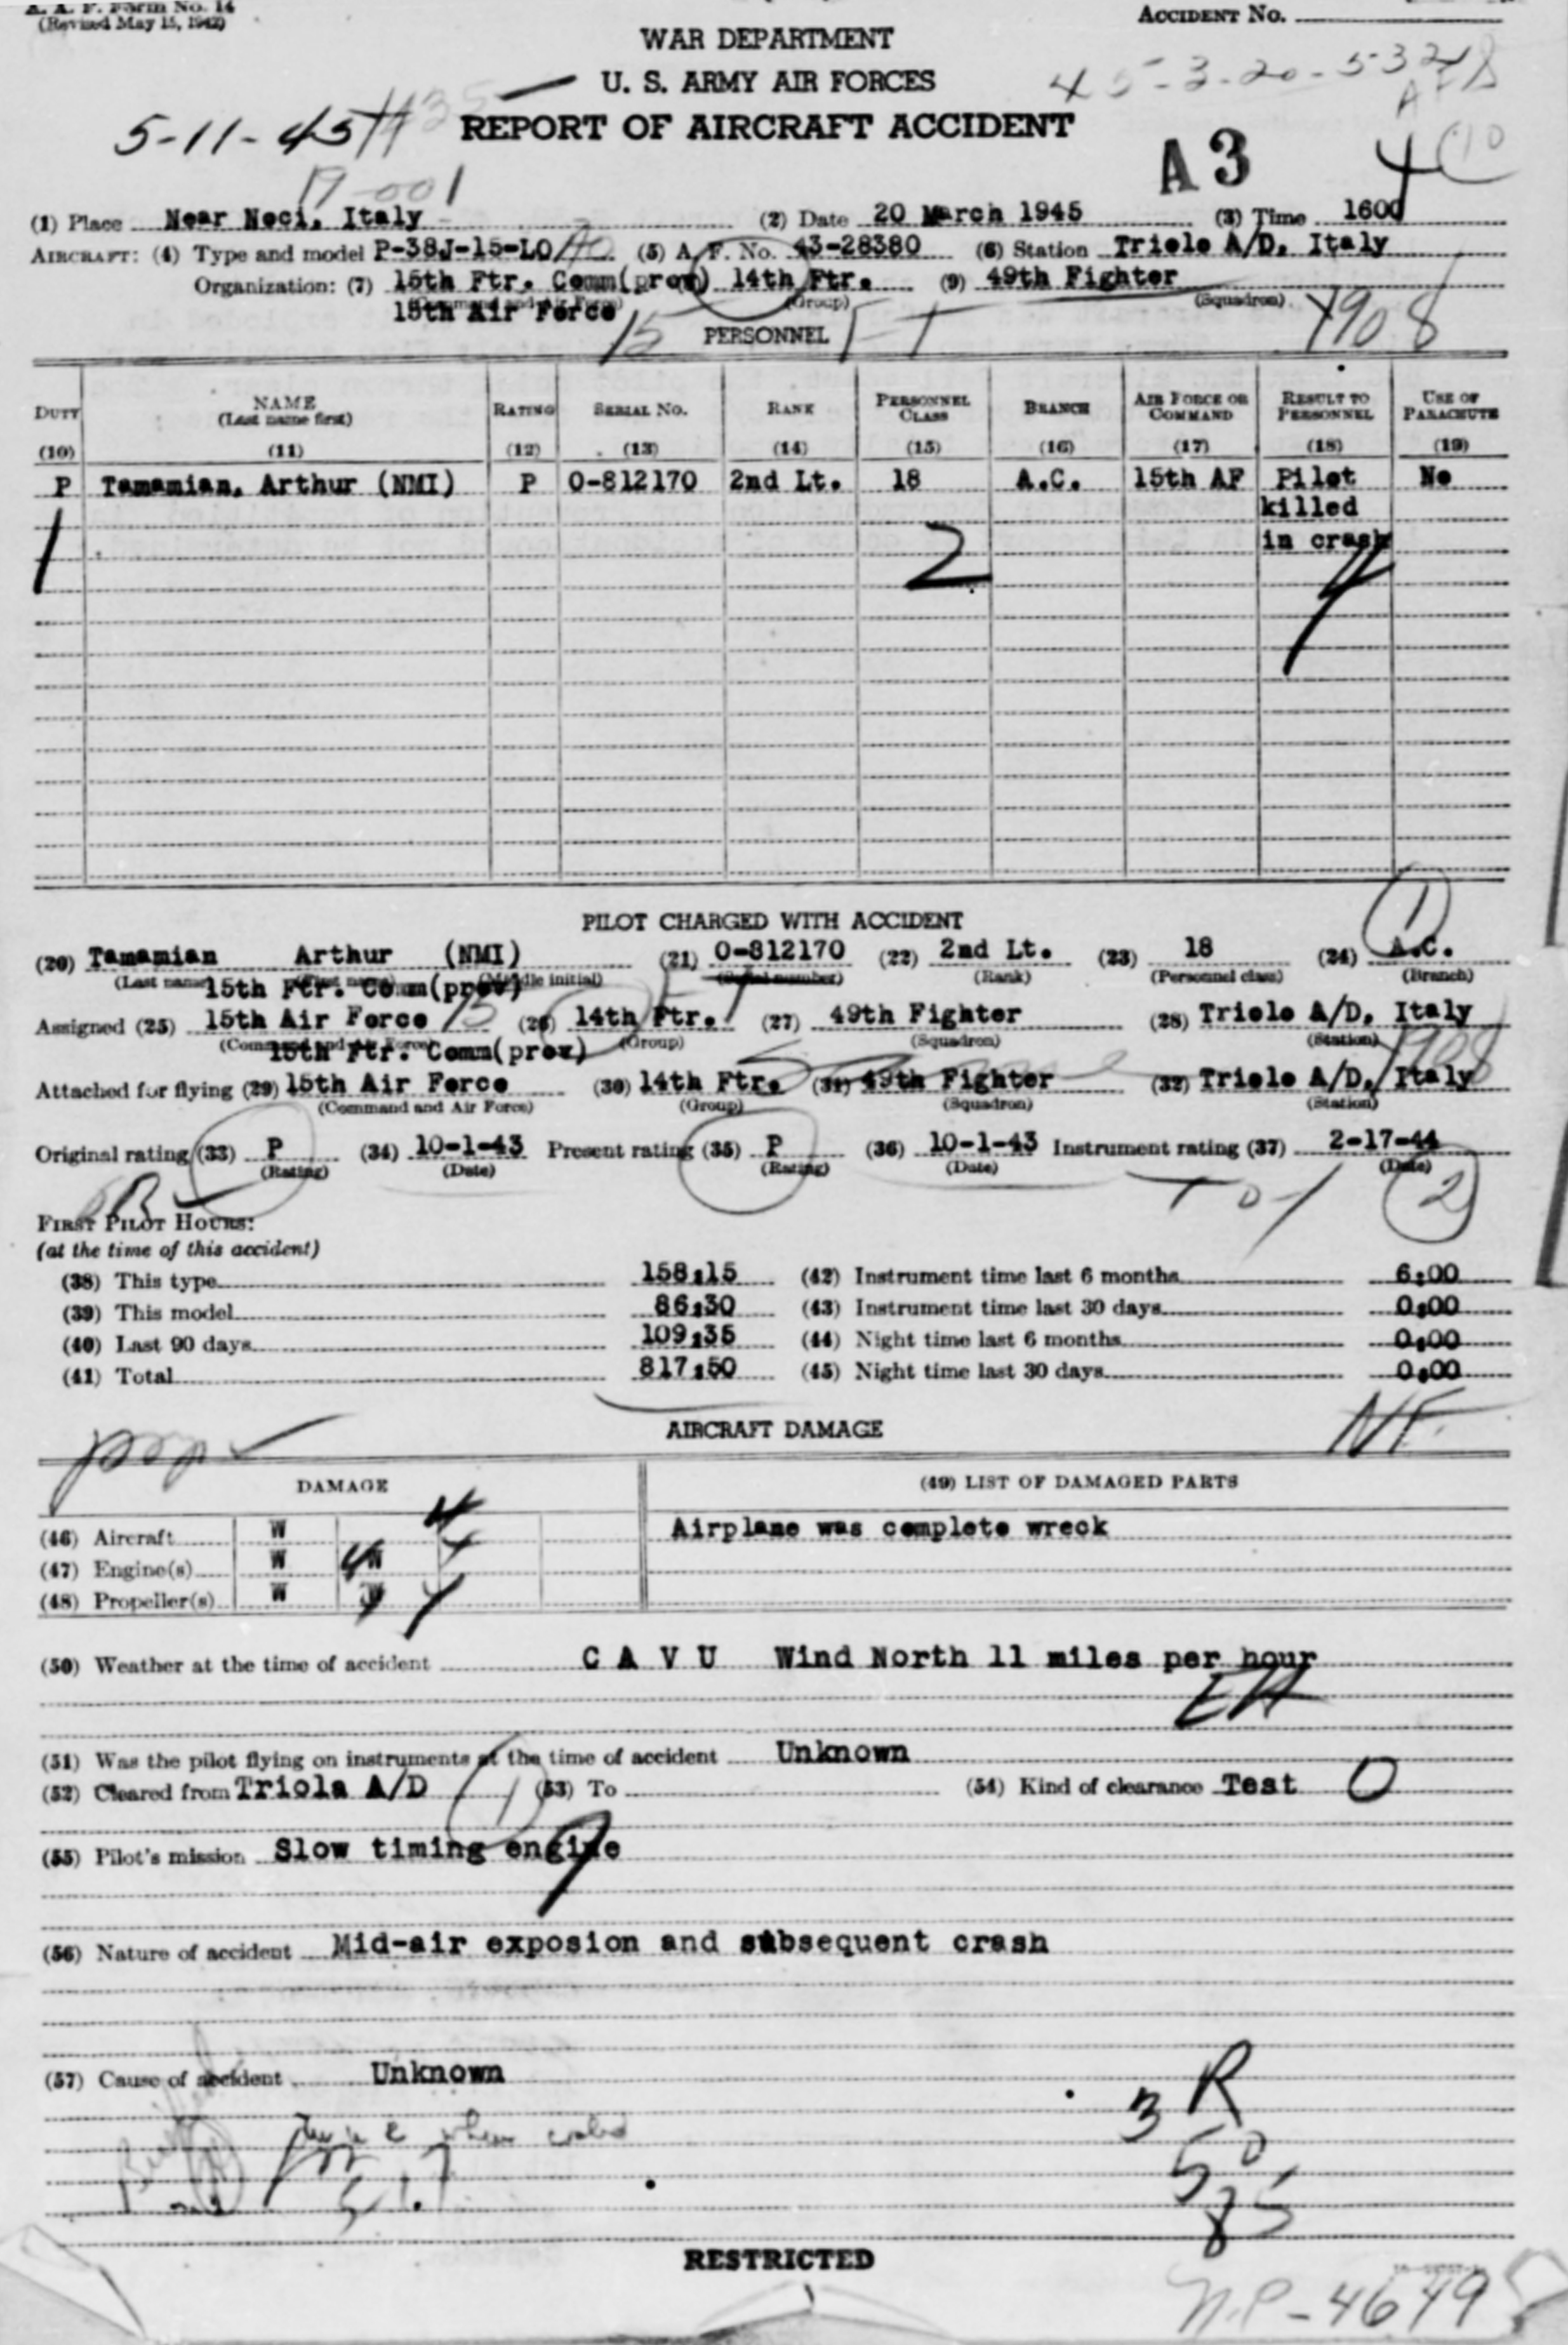 A. A. F. Form No. 14
(Revised May 15, 1942)
ACCIDENT No.
WAR DEPARTMENT
U. S. ARMY AIR FORCES
45-3-20-532
5-11-45
REPORT OF AIRCRAFT ACCIDENT
A3
(1) Place Near Noci, Italy (2) Date 20 March 1945 (3) Time 1600
AIRCRAFT: (4) Type and model P-38J-15-LO (5) A. F. No. 43-28380 (6) Station Triolo A/D, Italy
Organization: (7) 15th Ftr. Comm(prov) 14th Ftr. (9) 49th Fighter
(Command and Air Force) (Group) (Squadron)
15th Air Force
15 1908
PERSONNEL
DUTY NAME (Last name first) RATING SERIAL NO. RANK PERSONNEL CLASS BRANCH AIR FORCE OR COMMAND RESULT TO PERSONNEL USE OF PARACHUTE
(10) (11) (12) (13) (14) (15) (16) (17) (18) (19)
P Tamamian, Arthur (NMI) P O-812170 2nd Lt. 18 A.C. 15th AF Pilot No
killed
in crash
1 2 4
PILOT CHARGED WITH ACCIDENT
(20) Tamamian Arthur (NMI) (21) O-812170 (22) 2nd Lt. (23) 18 (24) A.C.
(Last name) (First name) (Middle initial) (Serial number) (Rank) (Personnel class) (Branch)
15th Ftr. Comm(prov)
Assigned (25) 15th Air Force 15 (26) 14th Ftr. (27) 49th Fighter (28) Triolo A/D, Italy
(Command and Air Force) (Group) (Squadron) (Station)
15th Ftr. Comm(prov)
Attached for flying (29) 15th Air Force (30) 14th Ftr. (31) 49th Fighter (32) Triolo A/D, Italy
(Command and Air Force) (Group) (Squadron) (Station)
Original rating (33) P (34) 10-1-43 Present rating (35) P (36) 10-1-43 Instrument rating (37) 2-17-44
(Rating) (Date) (Rating) (Date) (Date)
2
FIRST PILOT HOURS:
(at the time of this accident)
(38) This type 158:15 (42) Instrument time last 6 months 6:00
(39) This model 86:30 (43) Instrument time last 30 days 0:00
(40) Last 90 days 109:35 (44) Night time last 6 months 0:00
(41) Total 817:50 (45) Night time last 30 days 0:00
AIRCRAFT DAMAGE
DAMAGE (49) LIST OF DAMAGED PARTS
(46) Aircraft W Airplane was complete wreck
(47) Engine(s) W W
(48) Propeller(s) W W
(50) Weather at the time of accident C A V U Wind North 11 miles per hour
(51) Was the pilot flying on instruments at the time of accident Unknown
(52) Cleared from Triola A/D (53) To (54) Kind of clearance Test O
(55) Pilot's mission Slow timing engine
(56) Nature of accident Mid-air exposion and subsequent crash
(57) Cause of accident Unknown
3 R
RESTRICTED
N.P-4679